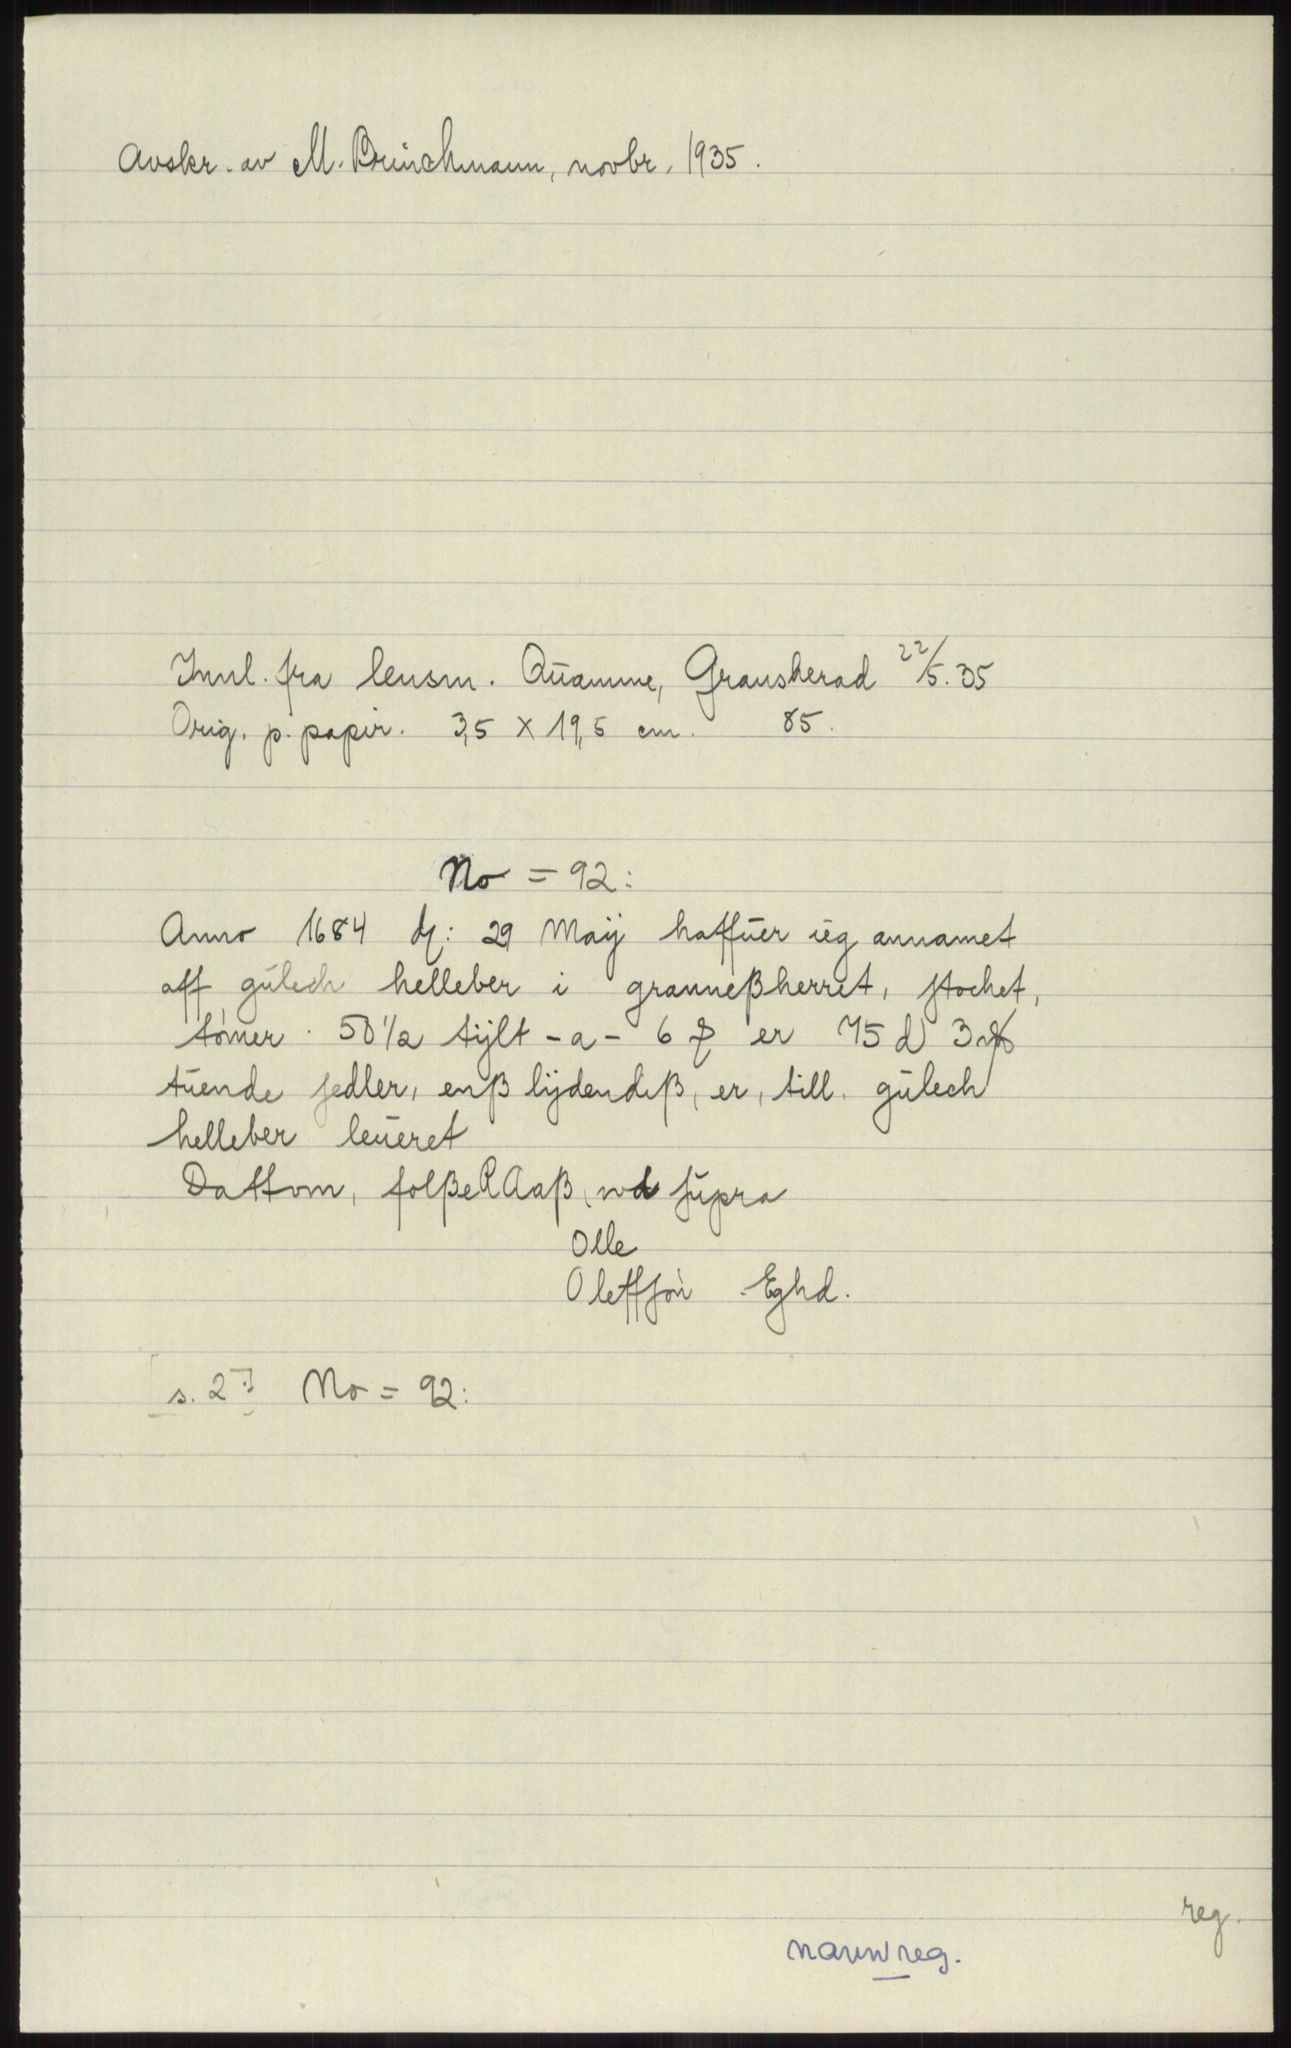 Avskr. av M. Brinchmann, novbr. 1935.
Innl. fra lensm. Quamme, Gransherad 22/5. 35
Orig. p. papir. 3,5 x 19,5 cm. 85.
No = 92:
Anno 1684 dj: 29 Maÿ haffuer ieg annamet
aff gulech helleber i granneßherret, stochet,
tømer . 50 1/2 tÿlt - a - 6 er 75 d 3
tuende sedler, enß lÿdendeß, er, till. gulech
helleber leueret
Dattom, folße Aaß, vd supra
Olle
Oleffsøn Eghd.
[s. 2:] No = 92:
reg.
navnreg.